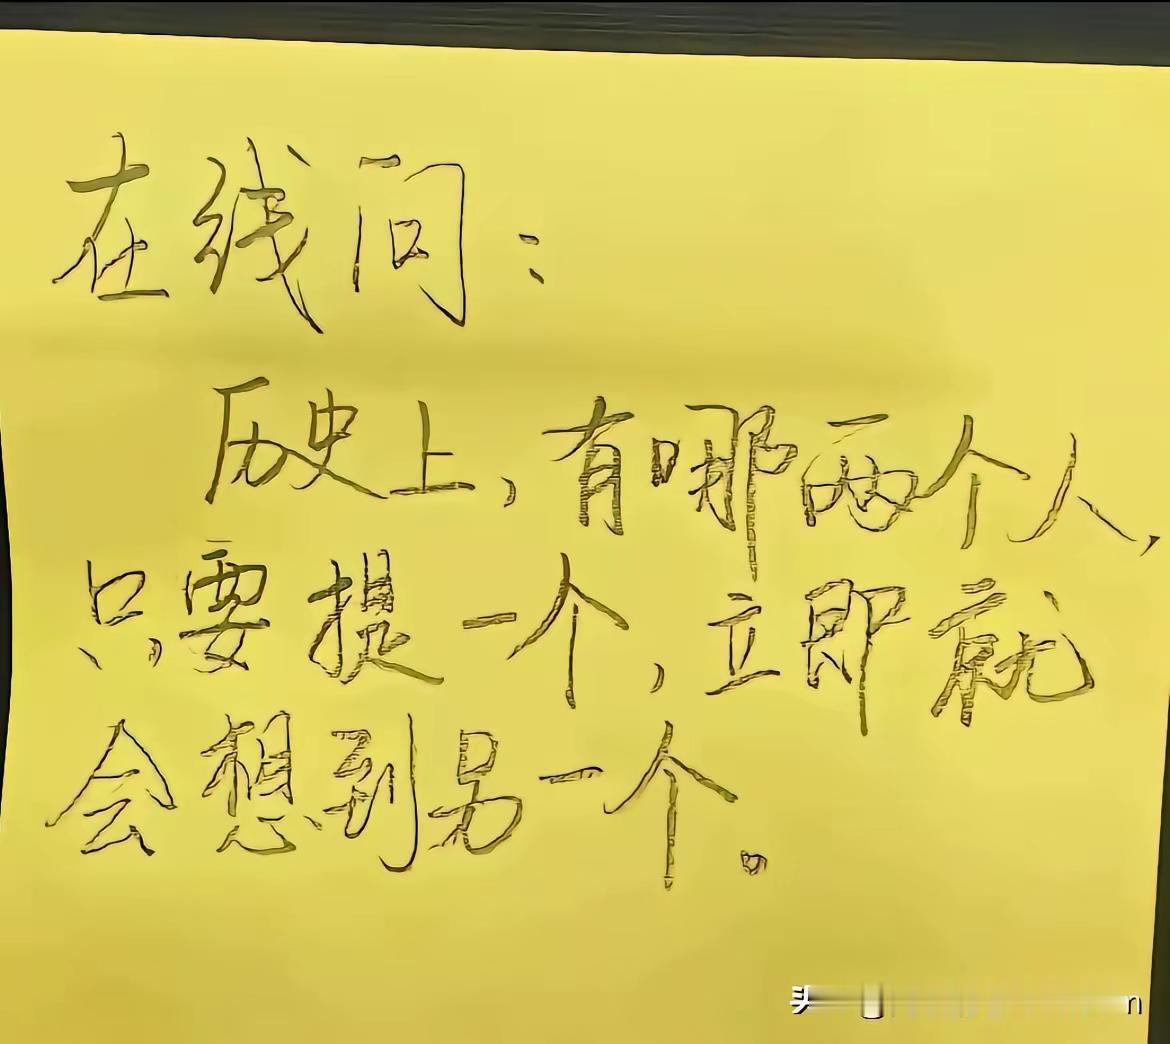 在线问:
历史上,有哪两个人,
只要提一个,立即就
会想到另一个。
头
n